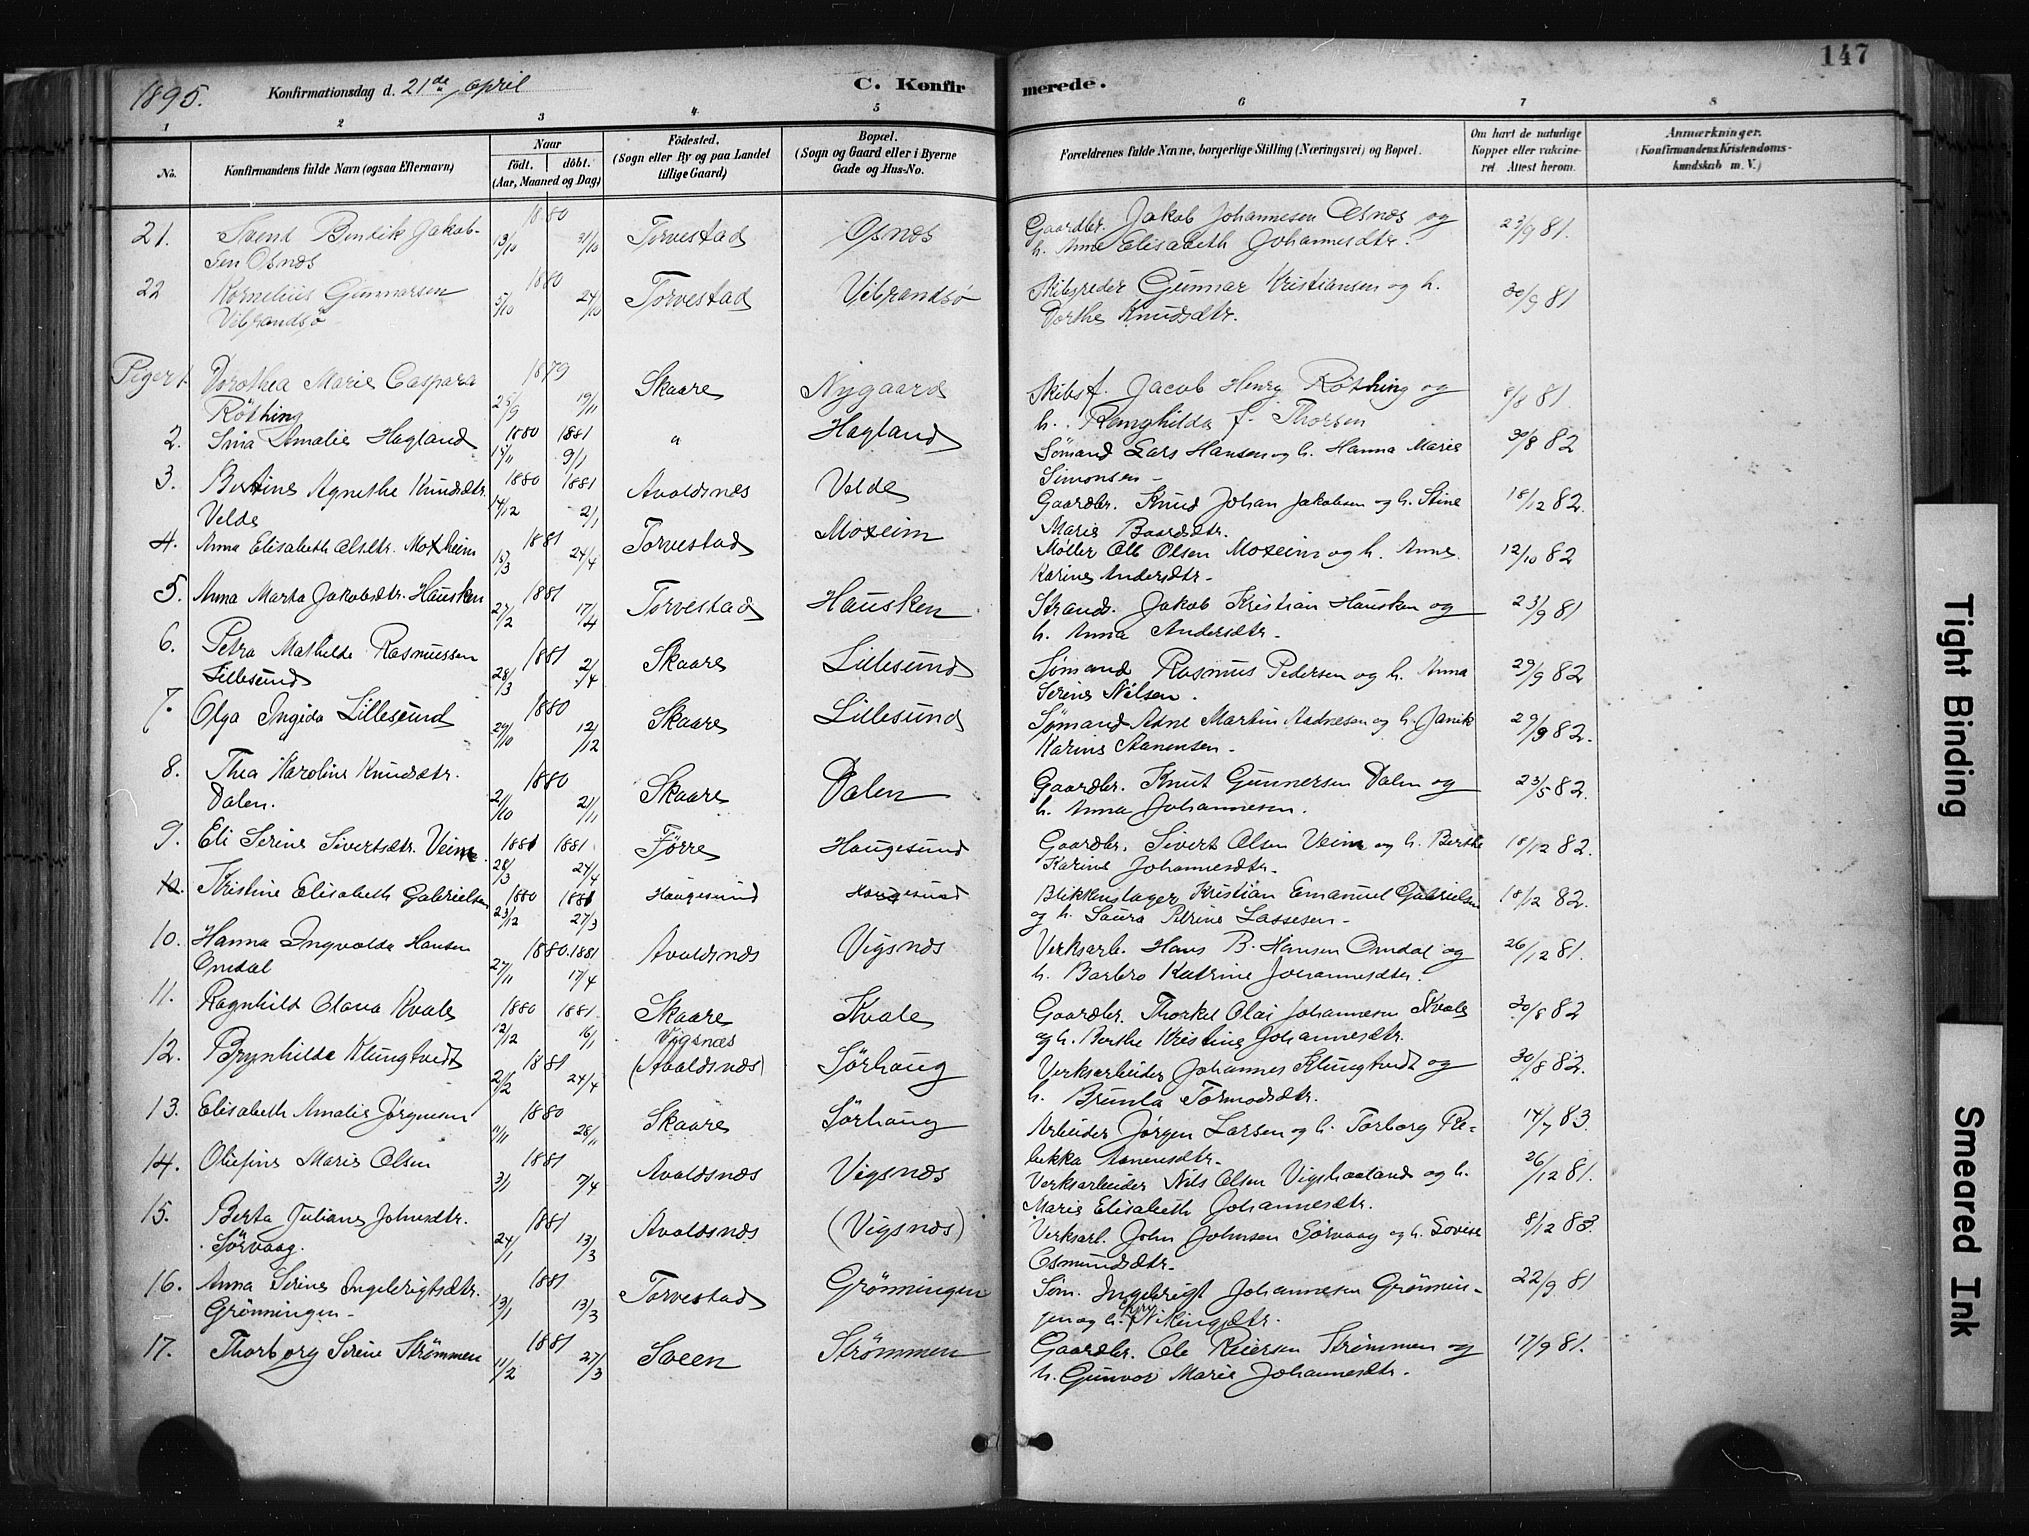 147
1895. Konfirmationsdag d. 21de april C. Konfir merede.
1 2 3 4 5 6 7 8
No. Konfirmandens fulde Navn (ogsaa Efternavn) Naar født. døbt. (Aar, Maaned og Dag) Fødested. (Sogn eller By og paa Landet tillige Gaard) Bopæl. (Sogn og Gaard eller i Byerne Gade og Hus-No. Forældrenes fulde Navne, borgerlige Stilling (Næringsvei) og Bopæl. Om havt de naturlige Kopper eller vakcineret. Attest herom. Anmærkninger. (Konfirmandens Kristendomskundskab m. V.)
21. Svend Bendik Jakob- 1880 13/10 31/10 Torvestad Osnæs Gaardbr. Jakob Johannesen Osnæs og 23/9 81.
sen Osnæs h. Anne Elisabeth Johannesdtr.
22 Kornelius Gunnarsen 1880 5/10 24/10 Torvestad Vibrandsø Skibsreder Gunnar Kristiansen og h. 30/9 81
Vibrandsø Dorthe Knudsdtr.
Piger 1. Dorothea Marie Caspara 1879 25/9 19/11 Skaare Nygaard Skibsf. Jacob Henry Röthing og 8/8 81.
Röthing h. Ranghilda f. Thorsen
2. Sina Amalie Hagland 1880 15/11 1881 9/1 " Hagland Sømand Lars Hansen og h. Hanna Marie 30/8 82
Simonsen -
3. Bertine Agnethe Knudsdtr. 1880 14/12 1881 2/1 Avaldsnæs Velde Gaardbr. Knud Johan Jakobsen og h. Stine 18/12 82.
Velde Marie Baardsdtr.
4. Anna Elisabeth Olsdtr. Moxheim 1881 15/3 24/4 Torvestad Moxeim Møller Ole Olsen Moxeim og h. Anne 12/10 82
Karine Andersdtr -
5. Anna Marta Jakobsdtr. Hausken 1881 27/2 17/4 Torvestad Hausken Strands. Jakob Kristian Hausken og 23/9 81
h. Anna Andersdtr -
6. Petra Mathilde Rasmussen 1881 28/3 2/4 Skaare Lillesund Sømand Rasmus Pedersen og h. Anna 29/9 82
Lillesund Serine Nilsen.
7. Olga Ingida Lillesund 1880 29/10 12/12 Skaare Lillesund Sømand Adne Martin Aadnesen og h. Janik 29/9 82.
Karine Aanensen -
8. Thea Karoline Knudsdtr. 1880 2/10 21/11 Skaare Dalen Gaardbr. Knut Gunnersen Dalen og 23/5 82.
Dalen. h. Anna Johannesen.
9. Eli Serine Sivertsdtr. Veim 1881 28/3 1881 24/4 Førre Haugesund Gaardbr. Sivert Olsen Veim og h. Berthe 18/12 82.
Karine Johannesdtr -
Kristine Elisabeth Gabrielsen 1880 23/12 1881 27/3 Haugesund Haugesund Blikkenslager Kristian Emanuel Gabrielsen 18/12 82.
og h. Laura Petrine Lassesen -
10. Hanna Ingvalda Hansen 1880. 27/11 1881 17/4 Avaldsnæs Vigsnæs Verksarb. Hans B. Hansen Omdal og 26/12 81.
Omdal h. Barbro Katrine Johannesdtr.
11. Ragnhild Olava Kvale 1880 12/12 1881. 16/1 Skaare Kvale Gaardbr. Thorkel Olai Johannesen Kvale 30/8 82
og h. Berthe Kristine Johannesdtr.
12. Brynhilde Klungtvedt 1881 2/2 24/4 Vigsnæs (Avaldsnæs) Sørhaug Verksarbeider Johannes Klungtvedt og 30/8 82.
h. Brunla Tormodsdtr.
13. Elisabeth Amalie Jørgensen 1880 11/11 28/11 Skaare Sørhaug Arbeider Jørgen Larsen og h. Torborg Re- 14/7 83
bekka Aanensdtr -
14. Oliefine Marie Olsen 1881 3/1 7/4 Avaldsnæs Vigsnæs Verksarbeider Nils Olsen Vigshaaland og h. 26/12 81.
Marie Elisabeth Johannesdtr.
15. Berta Juliane Johnsdtr. 1881 24/1 13/3 Avaldsnæs (Vigsnæs) Verksarb. John Johnsen Sørvaag og h. Lovise 8/12 83.
Sørvaag. Osmundsdtr -
16. Anna Serine Ingebrigtsdtr. 1881 13/1 13/3 Torvestad Grønningen Søm. Ingebrigt Johannesen Grønnin- 22/9 81
Grønningen - gen og h. Vikingsdtr.
17. Thorborg Serine Strømmen 1881 11/2 27/3 Sveen Strømmen Gaardbr. Ole Reiersen Strømmen og 17/9 81.
h. Gunvor Marie Johannesdtr.
Tight Binding
Smeared Ink